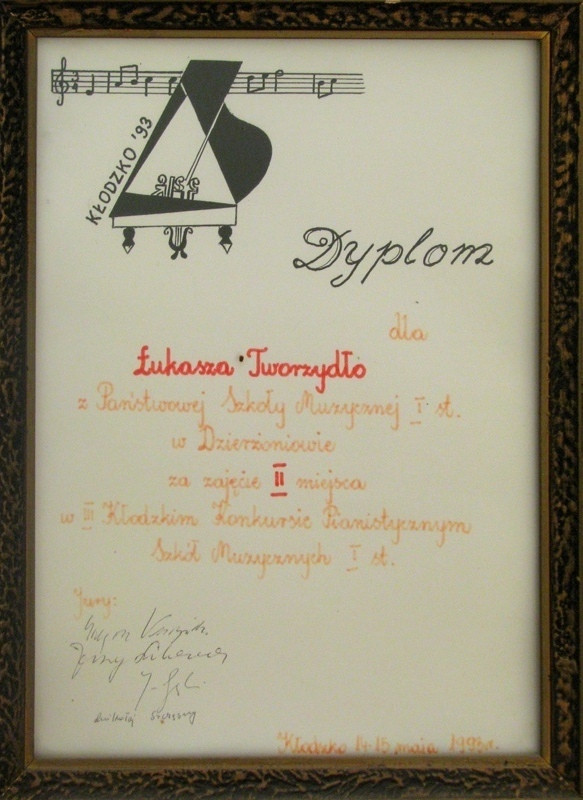 KŁODZKO '93
Dyplom
dla
Łukasza Tworzydło
z Państwowej Szkoły Muzycznej I st.
w Dzierżoniowie
za zajęcie II miejsca
w III Kłodzkim Konkursie Pianistycznym
Szkół Muzycznych I st.
Jury:
Jerzy
Kłodzko 14-15 maja 1993r.